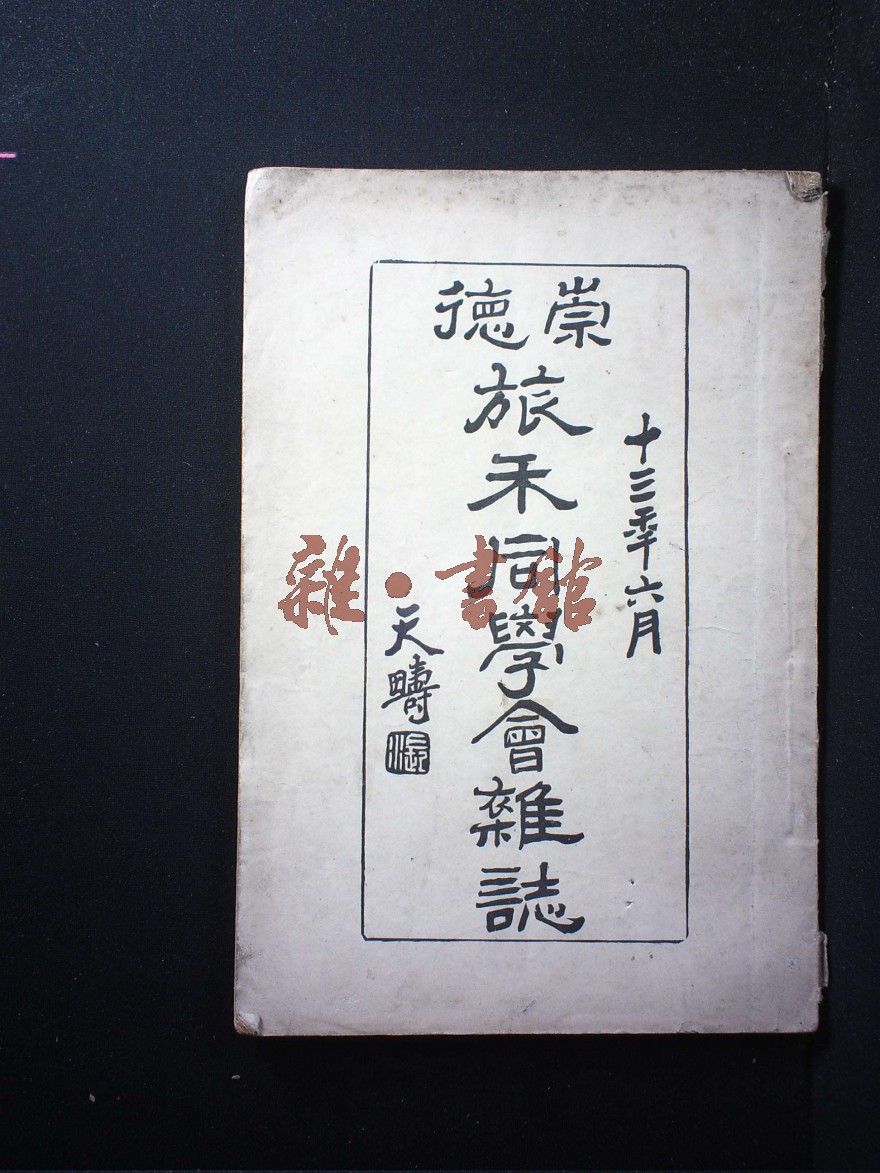 崇德
旅禾同學會雜誌
十三年六月
天疇
雜·書館